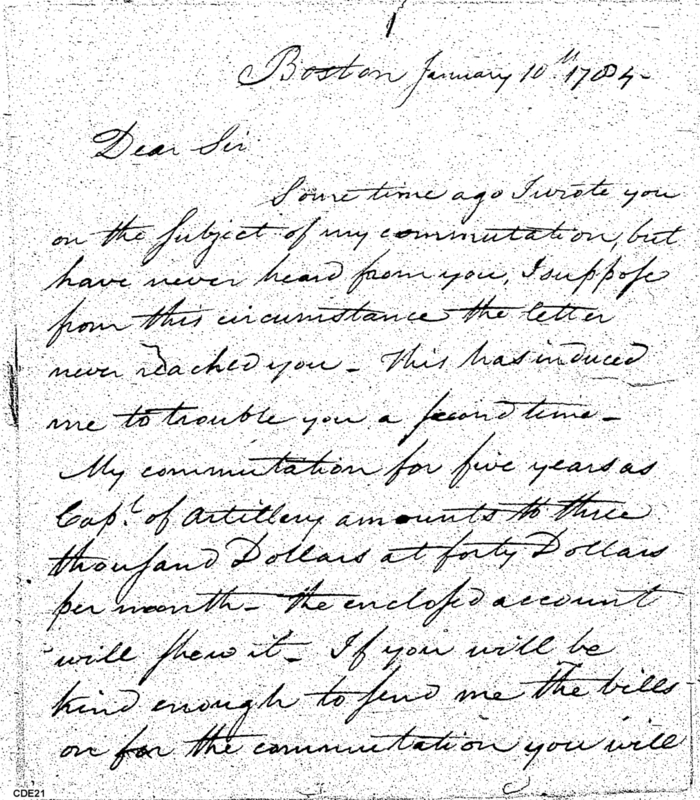 Boston January 10th 1784-
Dear Sir
Some time ago I wrote you
on the subject of my commutation, but
have never heard from you, I suppose
from this circumstance the letter
never reached you - This has induced
me to trouble you a second time -
My commutation for five years as
Capt. of Artillery amounts to three
thousand Dollars at forty Dollars
per month - the enclosed account
will shew it - If you will be
kind enough to send me the bills
or for the commutation you will
CDE21